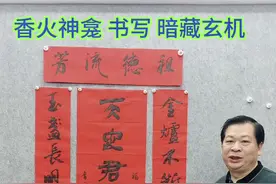 香火神龛 书写 暗藏玄机
芳流德祖
金爐不斷
天地君
玉盞長明